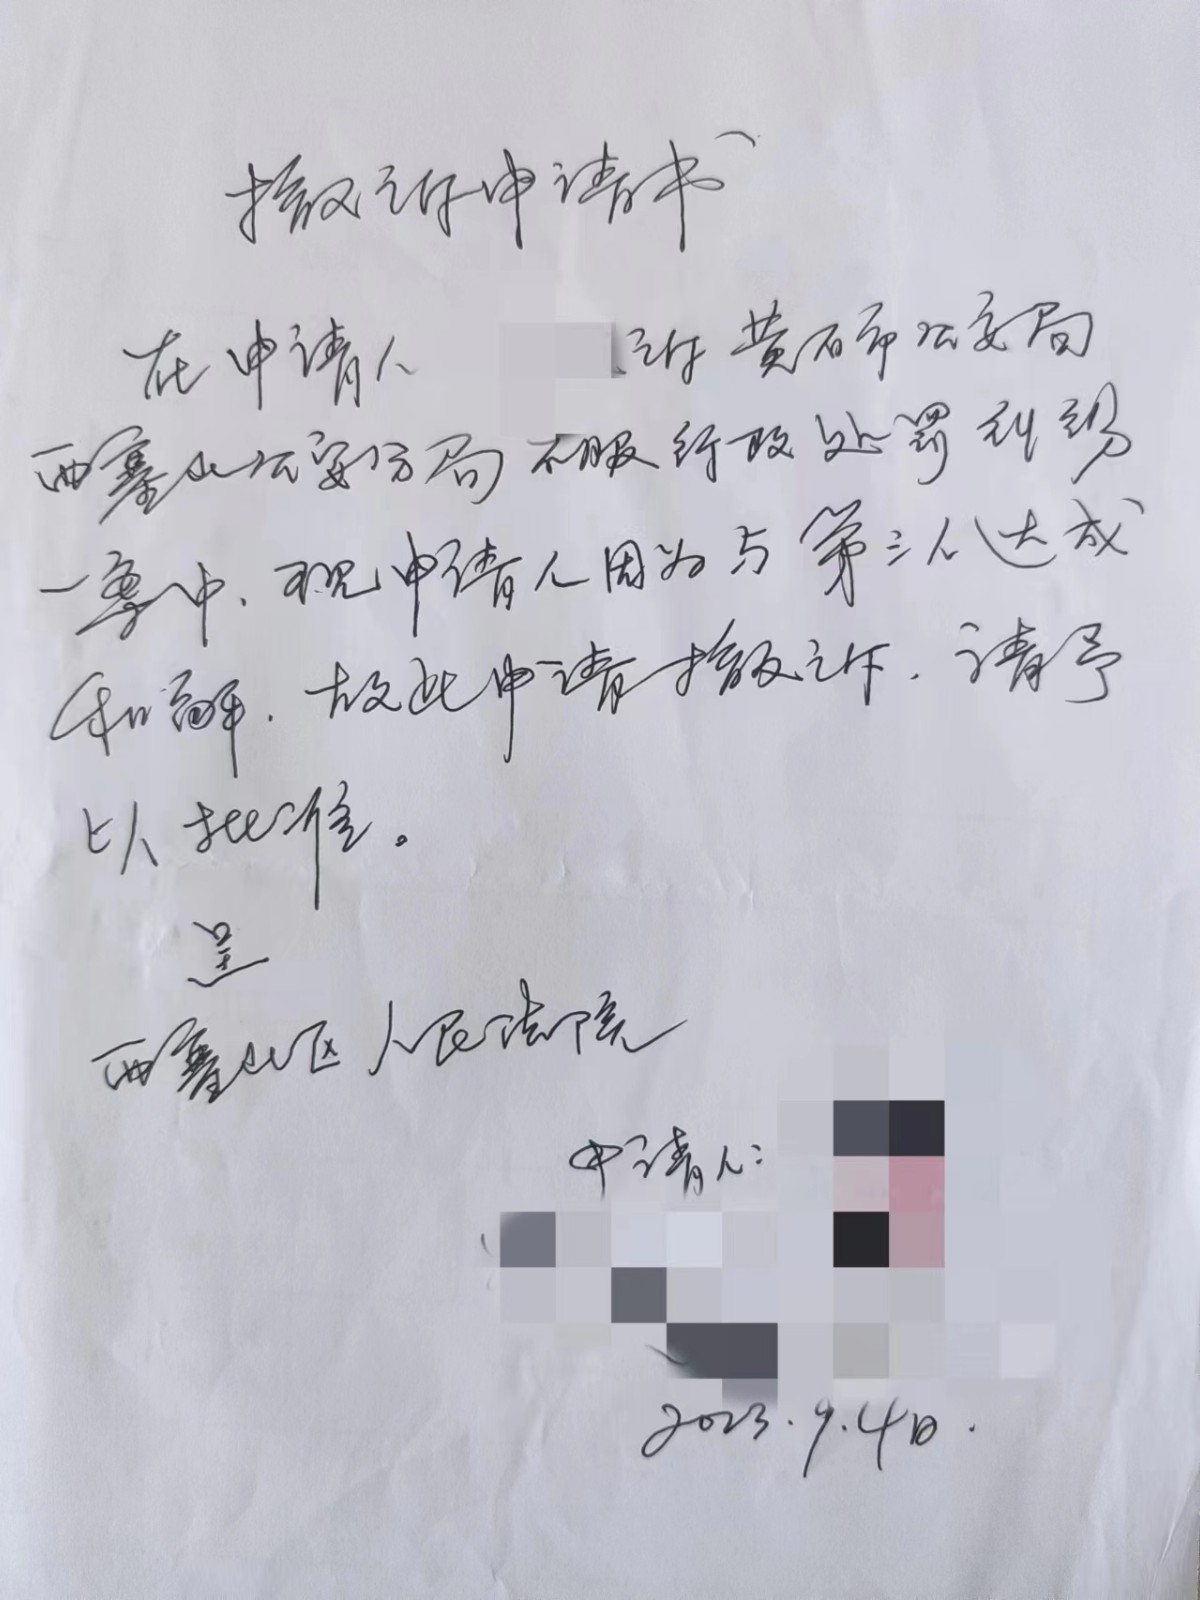 撤诉申请书
在申请人 诉黄石市公安局
西塞山公安分局不服行政处罚纠纷
一案中、现申请人因为与第三人达成
和解,故此申请撤诉,请予
以批准。
呈
西塞山区人民法院
申请人:
2023.9.4日.